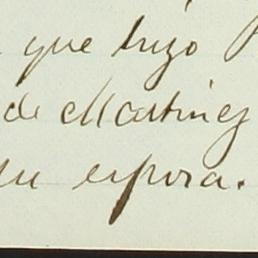 que hizo
de Martinez
su esposa.